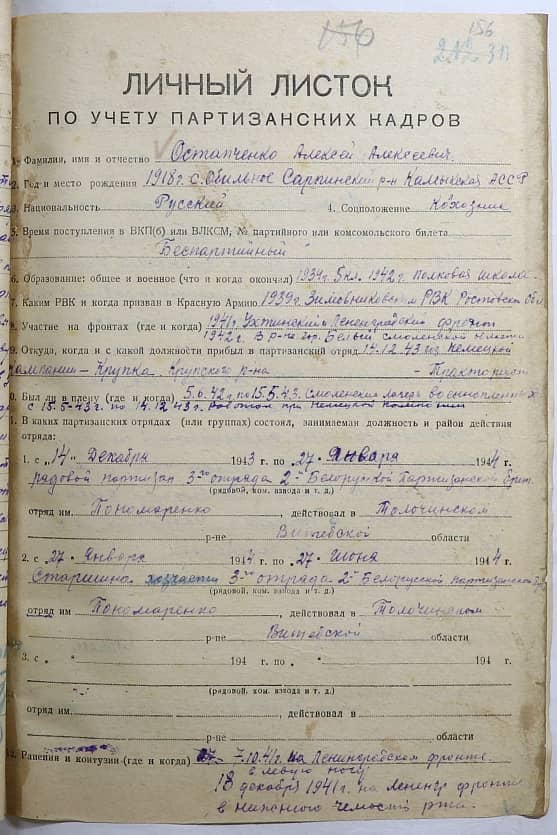 156
156
212 зп
ЛИЧНЫЙ ЛИСТОК
ПО УЧЕТУ ПАРТИЗАНСКИХ КАДРОВ
1. Фамилия, имя и отчество Остапченко Алексей Алексеевич.
2. Год и место рождения 1918 г. с. Обильное Сарпинский р-н Калмыкская АССР
3. Национальность Русский 4. Соцположение Колхозник
5. Время поступления в ВКП(б) или ВЛКСМ, № партийного или комсомольского билета
Беспартийный
6. Образование: общее и военное (что и когда окончил) 1934 г. 5 кл. 1942 г. полковая школа
7. Каким РВК и когда призван в Красную Армию 1939 г. Зимовниковским РВК Ростовской обл
8. Участие на фронтах (где и когда) 1941 г. Ухтинский и Ленинградский фронт
1942 г. в р-не гор. Белый Смоленской области
9. Откуда, когда и с какой должности прибыл в партизанский отряд 14.12.43 из Немецкой
компании - Крупка. Крупского р-на - Тракторист
10. Был ли в плену (где и когда) 5.6.42 г. по 15.5.43. Смоленский лагерь военнопленных
с 15.5-43 г. по 14.12.43 г. работал при немецкой компании
11. В каких партизанских отрядах (или группах) состоял, занимаемая должность и район действия
отряда:
1. с „14" Декабря 1943 г. по „27" Января 1944 г.
рядовой партизан 3го отряда 2й Белорусской Партизанской бриг.
(рядовой, ком. взвода и т. д.)
отряд им. Пономаренко, действовал в Толочинском
р-не Витебской области
2. с „27" Января 1944 г. по „27" Июня 1944 г.
Старшина хозчасти 3го отряда 2й Белорусской партизанской бр
(рядовой, ком. взвода и т. д.)
отряд им Пономаренко, действовал в Толочинском
р-не Витебской области
3. с „ " 194 г. по „ " 194 г.
(рядовой, ком. взвода и т. д.)
отряд им. , действовал в
р-не области
12. Ранения и контузии (где и когда) 7.10.41 г. На Ленинградском фронте
в левую ногу
18 декабря 1941 г. на Ленингр фронте
в нижнюю челюсть рта.